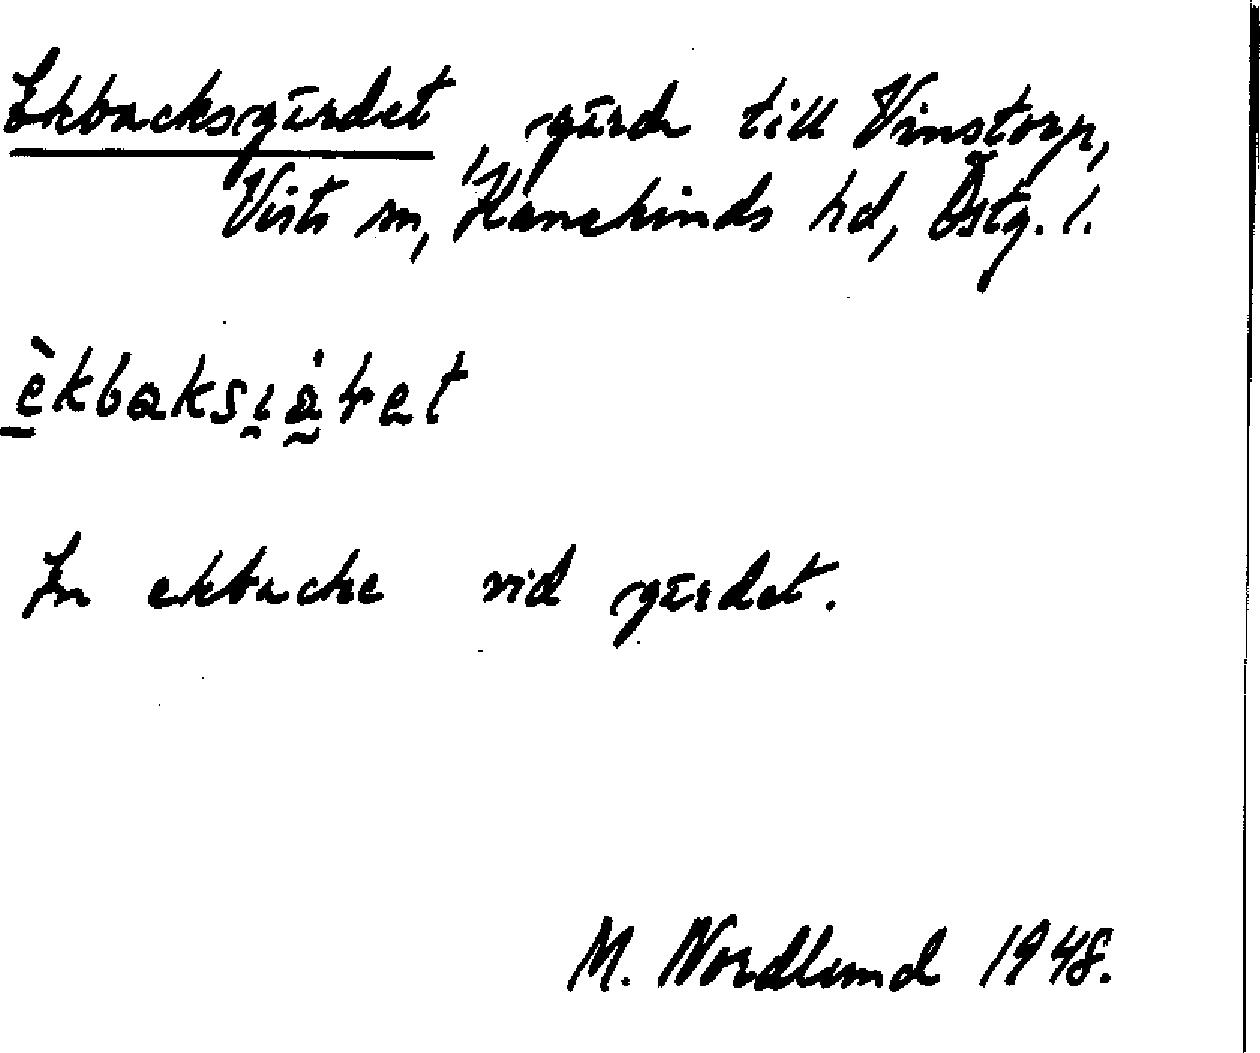 Ekbacksgärdet, gärde till Vinstorp,
Vists sn, Hanekinds hd, Östg. l.
èkbaksi̯ä̀ret
En ekbacke vid gärdet.
M. Nordlund 1948.